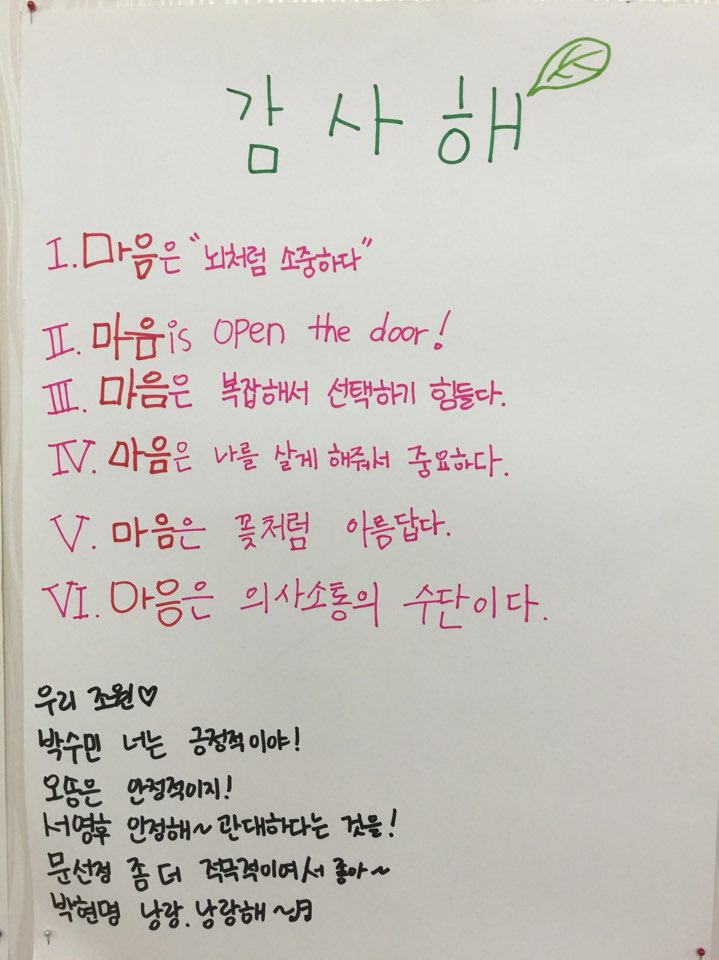 감사해
I. 마음은 "뇌처럼 소중하다"
II. 마음is open the door!
III. 마음은 복잡해서 선택하기 힘들다.
IV. 마음은 나를 살게 해줘서 중요하다.
V. 마음은 꽃처럼 아름답다.
VI. 마음은 의사소통의 수단이다.
우리 조원♡
박수민 너는 긍정적이야!
안정적이지!
서영후 안정해~ 관대하다는 것을!
문선정 좀 더 적극적이여서 좋아~
박현명 낭랑.낭랑해~♬